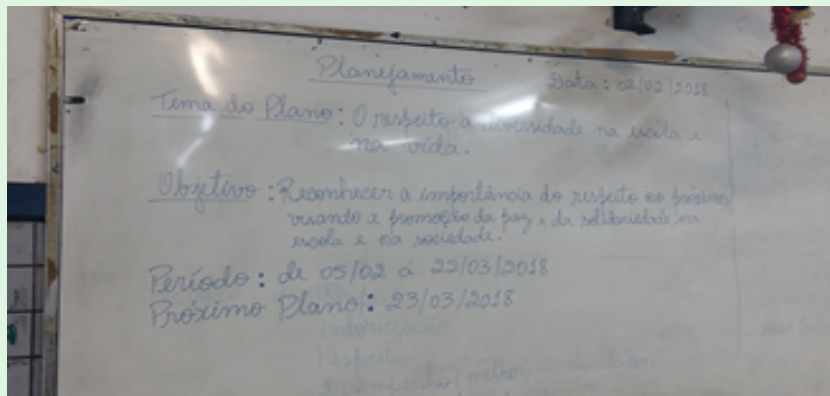 Planejamento Data: 02/02/2018
Tema do Plano: O respeito à diversidade na escola e
na vida.
Objetivo: Reconhecer a importância do respeito ao próximo,
visando a promoção da paz e da solidariedade na
escola e na sociedade.
Período: de 05/02 a 22/03/2018
Próximo Plano: 23/03/2018
Respeito